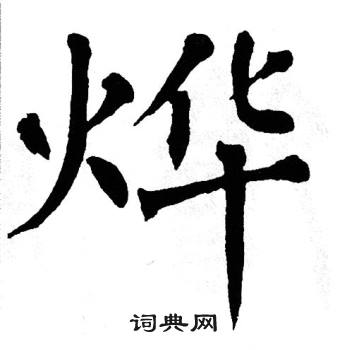 烨
词典网